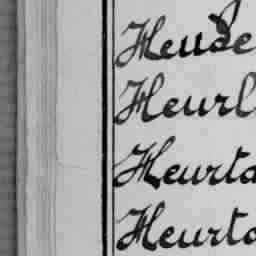 Heude
Heurl
Heurta
Heurto